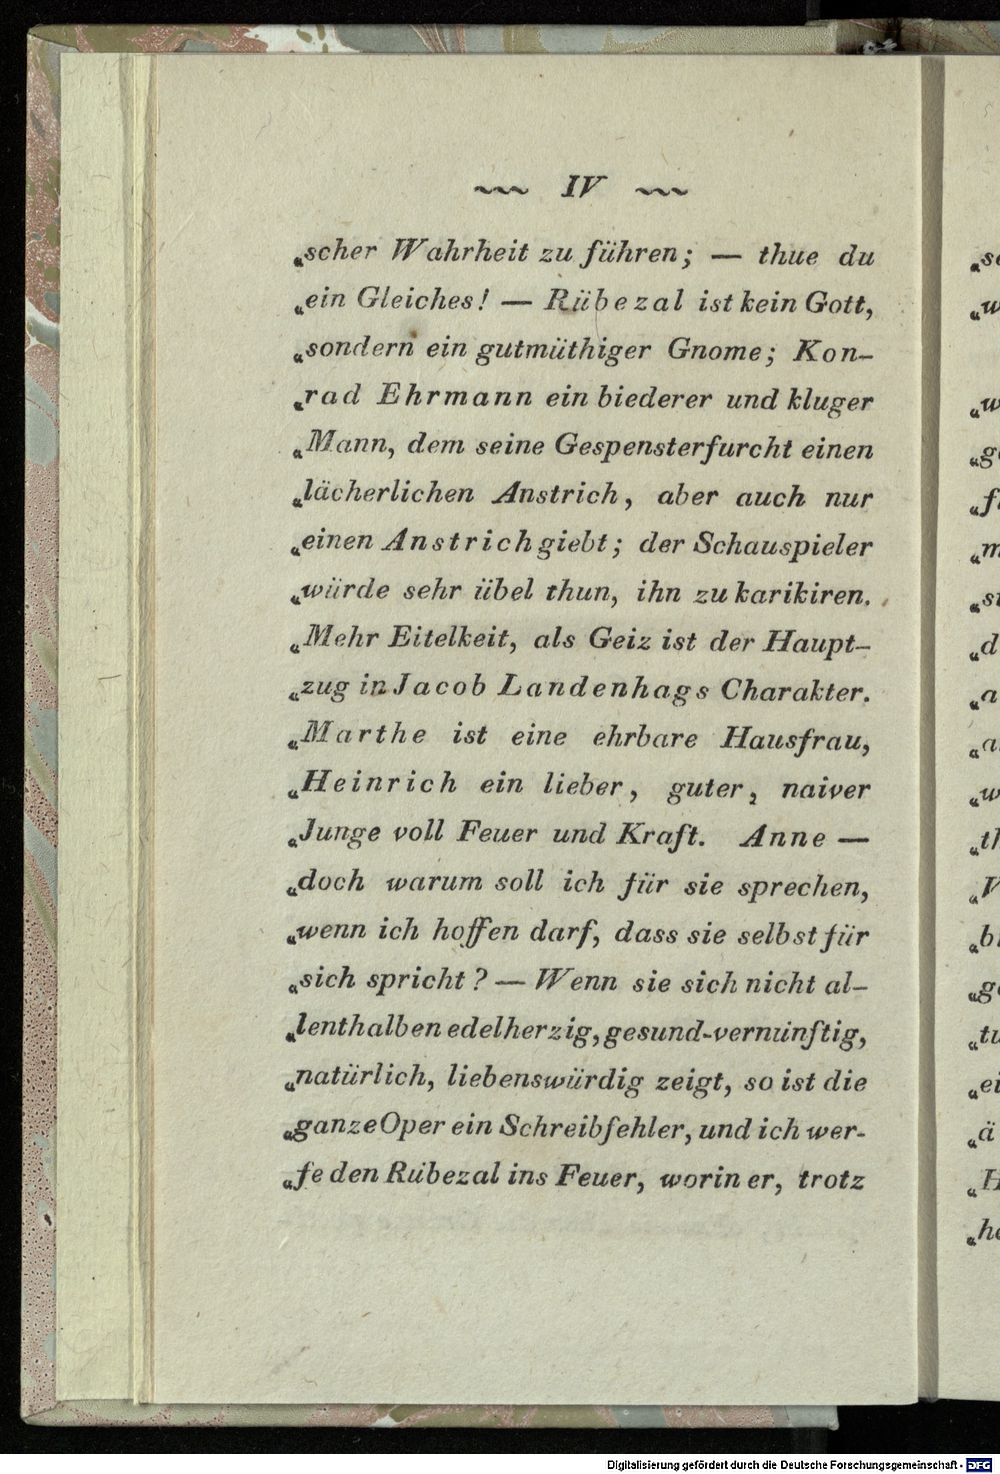 ~~ IV ~~
„scher Wahrheit zu führen; — thue du
„ein Gleiches! — Rübezal ist kein Gott,
„sondern ein gutmüthiger Gnome; Kon-
„rad Ehrmann ein biederer und kluger
„Mann, dem seine Gespensterfurcht einen
„lächerlichen Anstrich, aber auch nur
„einen Anstrich giebt; der Schauspieler
„würde sehr übel thun, ihn zu karikiren.
„Mehr Eitelkeit, als Geiz ist der Haupt-
„zug in Jacob Landenhags Charakter.
„Marthe ist eine ehrbare Hausfrau,
„Heinrich ein lieber, guter, naiver
„Junge voll Feuer und Kraft. Anne —
„doch warum soll ich für sie sprechen,
„wenn ich hoffen darf, dass sie selbst für
„sich spricht? — Wenn sie sich nicht al-
„lenthalben edelherzig, gesund-vernünftig,
„natürlich, liebenswürdig zeigt, so ist die
„ganze Oper ein Schreibfehler, und ich wer-
„fe den Rübezal ins Feuer, worin er, trotz
Digitalisierung gefördert durch die Deutsche Forschungsgemeinschaft - DFG